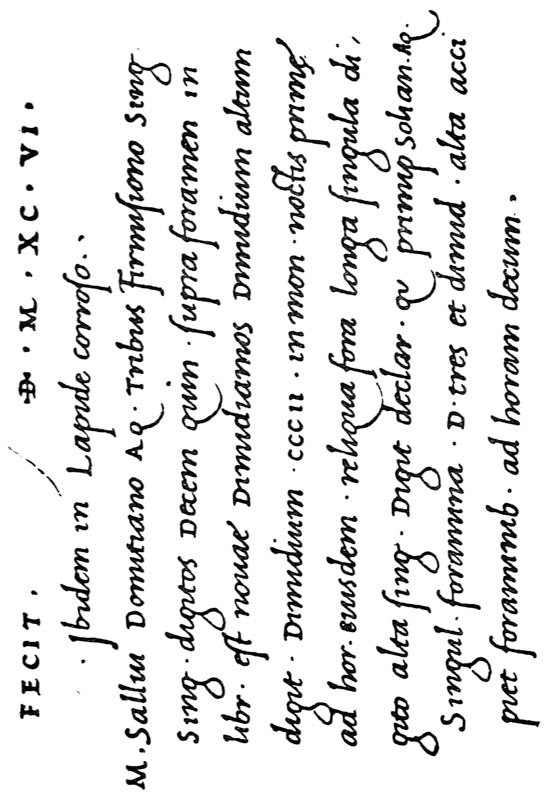 FECIT. Ð. M. XC. VI.
. Ibidem in Lapide corroso.
M. Sallui Domitiano AQ. Tribus Firmisiono Sing
Sing. digitos Decem quin. supra foramen in
libr. est novae Dimidiamos Dimidium altum
digit. Dimidium. CCCII. in mon. noctis prime
ad hor. eiusdem. reliqua fora longa singula di,
gito alta sing. Digit declar. qu primup Sohan. Aq.
Singul. foramina. D. tres et dimid. alta acci
piet foraminib. ad horam decum.